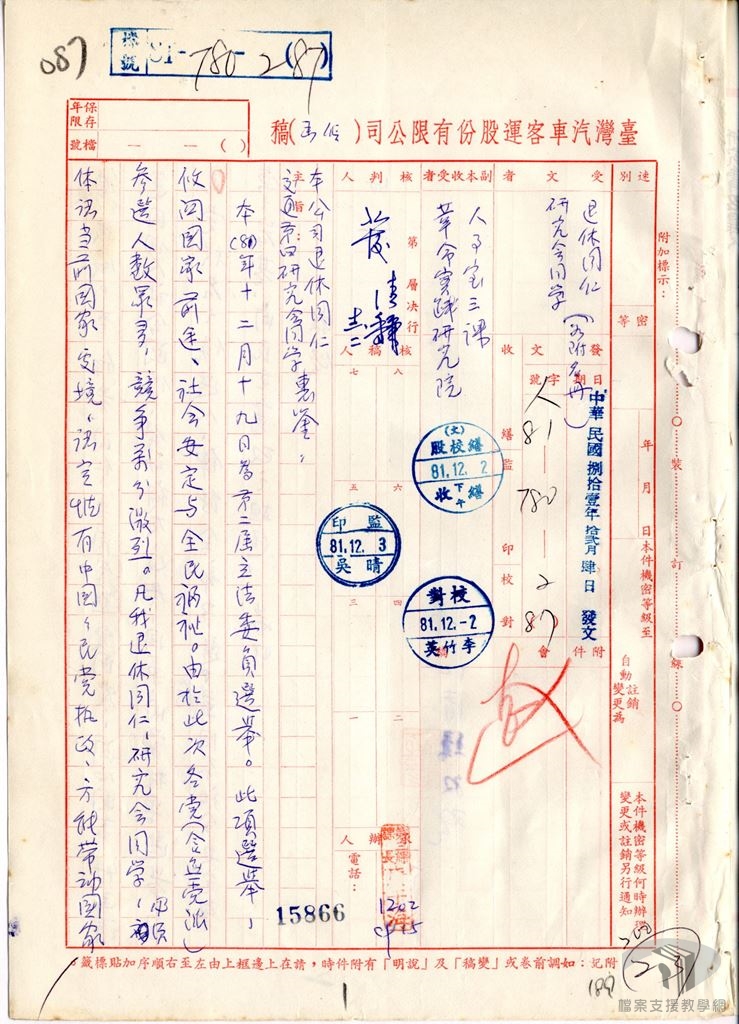 087
檔號 81-780-2(87)
保存年限
檔號 — — ( )
臺灣汽車客運股份有限公司(函)稿
速別
密等
附加標示：
受文者
退休同仁
研究會同學(如附名冊)
副本收受者
人事室三課
革命實踐研究院
核判人
第 層決行
核稿人
八 七 六 五 四 三 二 一
承辦人
電話：
發文
日期
字號
附件
中華民國捌拾壹年拾貳月肆日 發文
人 81 — 780 — 2 87
收文
繕 監
印
校對
會
年 月 日
本件機密等級至
自動註銷
變更為
本件機密等級何時辦理
變更或註銷另行通知
裝 訂 線
(文)
繕校股
81.12.2
下午
繕收
監印
81.12.3
吳晴
校對
81.12.-2
李竹英
主旨：
本公司退休同仁
交通第四研究會同學 惠鑒：
本(81)年十二月十九日為第二屆立法委員選舉。此項選舉，
攸關國家前途、社會安定與全民福祉。由於此次各黨(含無黨派)
參選人數眾多，競爭萬分激烈。凡我退休同仁，研究會同學，
体認當前國家處境，認定惟有中國國民黨執政、方能帶動國家
15866
1202
附記：如調前卷或「變稿」及「說明」有附件時，請在上邊上框由左至右順序加貼標籤。
1
189
檔案支援教學網